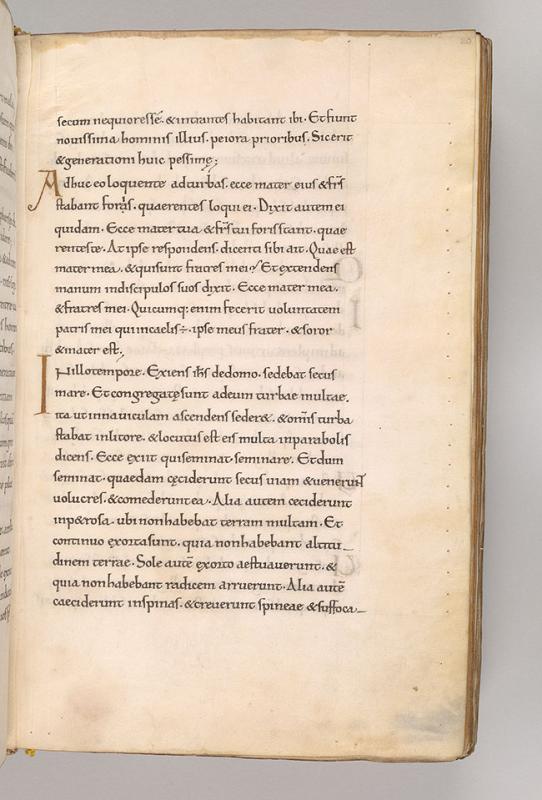 secum nequioresse. & intrantes habitant ibi. Et fiunt
novissima hominis illius. peiora prioribus. Sic erit
& generationi huic pessimę;
Adhuc eo loquente ad turbas. ecce mater eius & frs
stabant foras. quaerentes loqui ei. Dixit autem ei
quidam. Ecce mater tua & frs tui foris stant. quae
rentes te. At ipse respondens. dicenti sibi ait. Quae est
mater mea. & qui sunt fratres mei? Et extendens
manum in discipulos suos dixit. Ecce mater mea.
& fratres mei. Quicumq; enim fecerit voluntatem
patris mei qui in caelis ÷. ipse meus frater. & soror
& mater est.
In illo tempore. Exiens ihs de domo. sedebat secus
mare. Et congregatę sunt ad eum turbae multae.
ita ut in naviculam ascendens seder&. & omis turba
stabat in litore. & locutus est eis multa in parabolis
dicens. Ecce exiit qui seminat. seminare. Et dum
seminat. quaedam cęciderunt secus viam & venerunt
volucres. & comederunt ea. Alia autem ceciderunt
in p&rosa. ubi non habebat terram multam. Et
continuo exorta sunt. quia non habebant altitu_
dinem terrae. Sole autē exorto aestuaverunt. &
quia non habebant radicem arruerunt. Alia autē
caeciderunt in spinas. & creverunt spineae & suffoca_